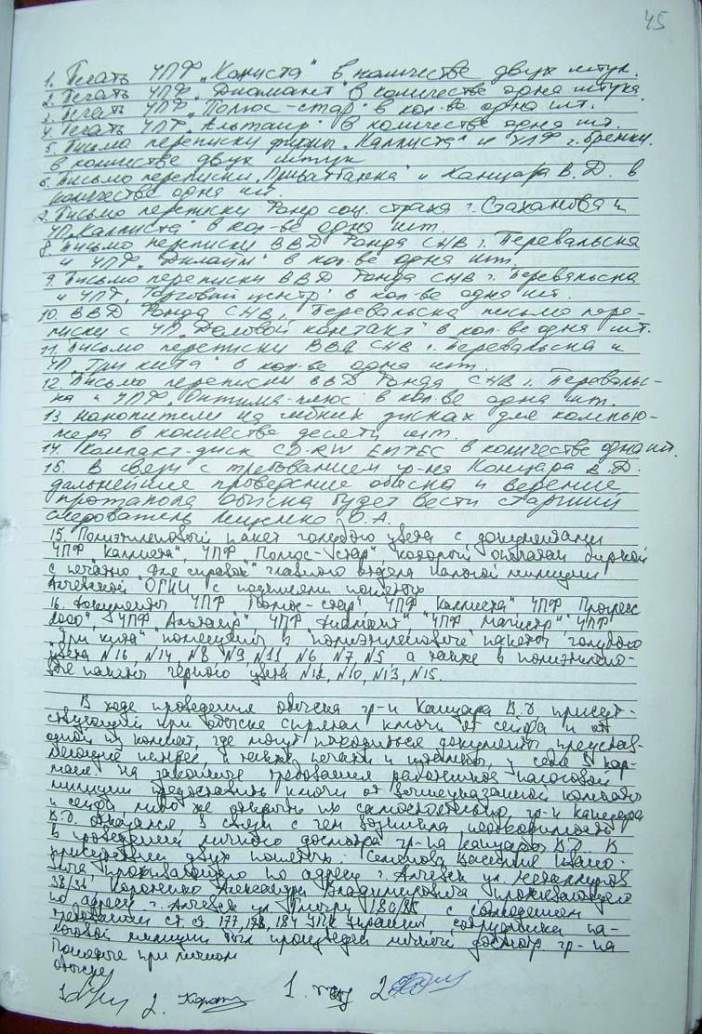 45
1. Печать ЧПФ „Каниста" в количестве двух штук.
2. Печать ЧПФ „Диамант" в количестве одна штука
3. Печать ЧПФ „Полюс-стар" в кол-ве одна шт.
4. Печать ЧПФ „Альтаир" в количестве одна шт.
5. Письма переписки фирмы „Каллиста" и ЧПФ г. Брянки.
в количестве двух штук
6. Письмо переписки „Приватбанка" и Канцара В.Д. в
количестве одна шт.
7. Письмо переписки Фонд соц. страха г. Стаханова и
ЧП „Каллиста" в кол-ве одна шт.
8. Письмо переписки ВВД Фонда СНВ г. Перевальска
и ЧПФ в кол-ве одна шт.
9. Письмо переписки ВВД Фонда СНВ г. Перевальска
и ЧПФ „Торговый центр" в кол-ве одна шт.
10. ВВД Фонда СНВ г. Перевальска письмо пере-
писки с ЧП „Деловой контакт" в кол-ве одна шт.
11. Письмо переписки ВВД СНВ г. Перевальска и
ЧП „Три кита" в кол-ве одна шт.
12. Письмо переписки ВВД Фонда СНВ г. Переваль-
ка и ЧПФ „Оптима-плюс" в кол-ве одна шт.
13. Накопители на гибких дисках для компью-
тера в количестве десяти шт.
14. Компакт-диск CD-RW EMTEC в количестве одна шт.
15. В связи с требованием гр-на Канцара В.Д.
дальнейшие проверение обыска и ведение
протокола обыска будет вести старший
следователь Ищенко О.А.
15. Полиэтиленовый пакет голубого цвета с документами
ЧПФ „Каллиста", ЧПФ Полюс-стар", который опечатан биркой
с печатью „Для справок" главного отдела налоговой милиции
Алчевской ОГНИ с подписями понятых
16. Документы ЧПФ „Полюс-стар", ЧПФ „Каллиста" ЧПФ Прогресс
2000" ЧПФ „Альтаир" ЧПФ „Диамант" ЧПФ Магистр" ЧПФ
„Три кита" помещены в полиэтиленовые пакеты голубого
цвета №16 №14 №8 №9, №11 №6, №7, №5 а также в полиэтилено-
вые пакеты чёрного цвета №12, №10, №13, №15.
В ходе проведения обыска гр-н Канцара В.Д присут-
ствующий при обыске спрятал ключи от сейфа и от
одной из комнат, где могут находиться документы представ-
ляющие интерес, а также печати и штампы, у себя в кар-
мане. На законное требования работников налоговой
милиции предоставить ключи от вышеуказанной комнаты
и сейфа либо же открыть их самостоятельно, гр-н Канцара
В.Д. отказался, в связи с чем возникла необходимость
в проведении личного досмотра гр-на Канцары В.Д. В
присутствии двух понятых: Семенова Василия Ивано-
вича, проживающего по адресу г. Алчевск ул.
Короленко Александра Владимировича проживающего
по адресу г. Алчевск ул. с соблюдением
требований ст. ст. 177, 178, 184 УПК Украины сотрудники на-
логовой милиции был произведен личный досмотр гр-на
Понятые при личном
обыске
1. 2. 1. 2.